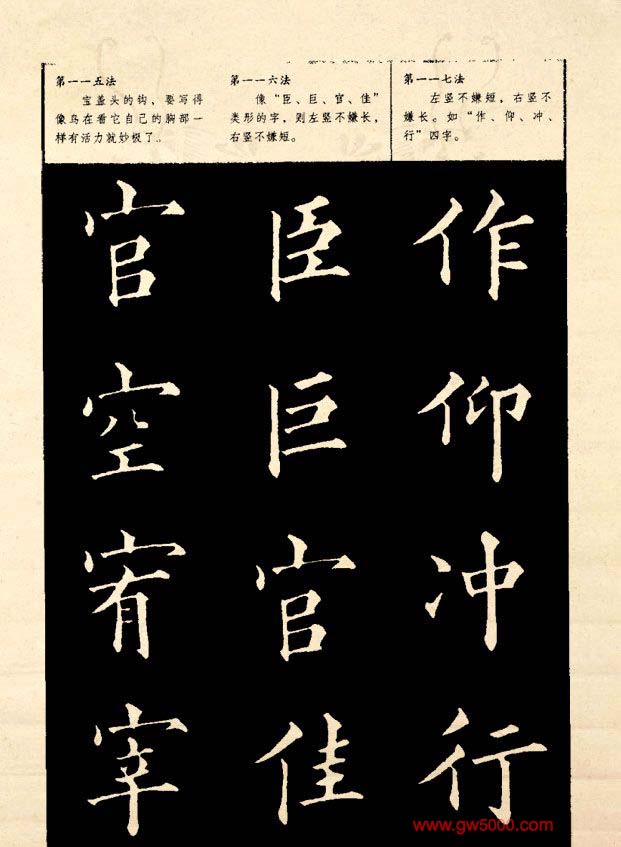 第一一五法
宝盖头的钩，要写得
像鸟在看它自己的胸部一
样有活力就妙极了..
第一一六法
像“臣、巨、官、佳”
类形的字，则左竖不嫌长，
右竖不嫌短。
第一一七法
左竖不嫌短，右竖不
嫌长。如“作、仰、冲、
行”四字。
官
空
宥
宰
臣
巨
官
佳
作
仰
冲
行
www.gw5000.com